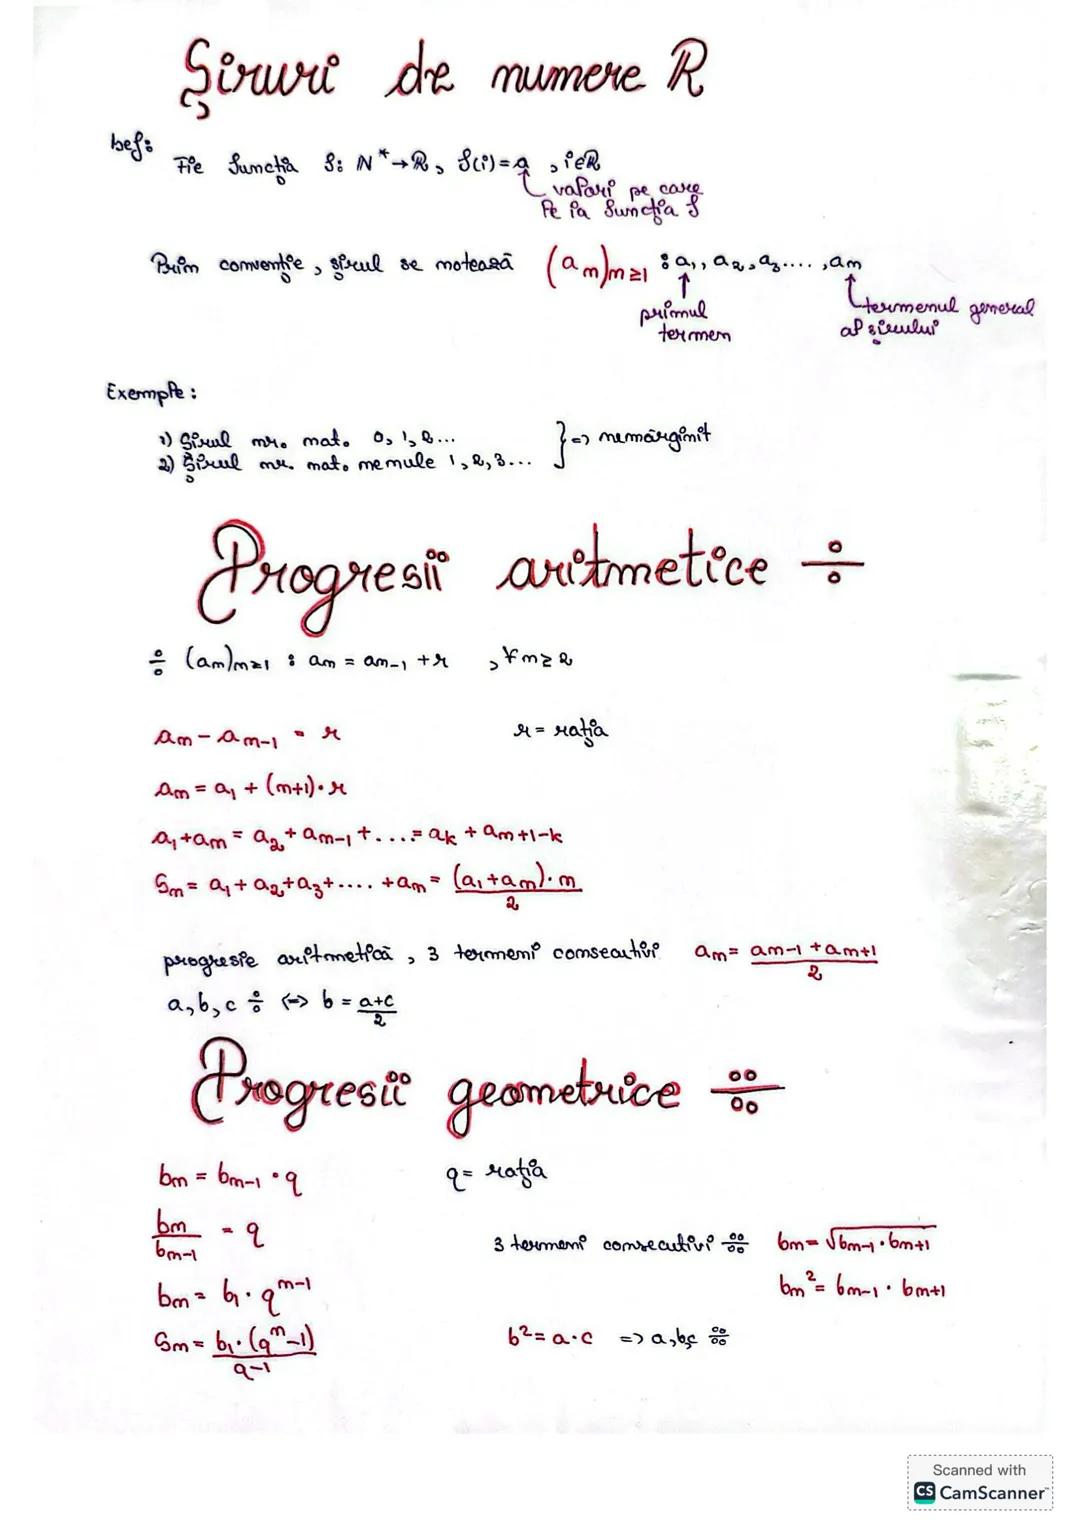 Șiruri de numere R
Def:
Fie funcția f: N* → R, f(i) = a, i∈R
valori pe care
le ia funcția f
Prin convenție, șirul se notează (an)n≥1 : a1, a2, a3...., an
primul
termen
termenul general
al șirului
Exemple:
1) Șirul nr. nat. 0, 1, 2...
2) Șirul nr. nat. nenule 1, 2, 3...
} => nemărginit
Progresii aritmetice ÷
÷ (an)n≥1 : an = an-1 + r , ∀ n ≥ 2
an - an-1 = r
r = rația
an = a1 + (n+1)·r
a1 + an = a2 + an-1 + .... = ak + an+1-k
Sn = a1 + a2 + a3 + .... + an = (a1 + an)·n / 2
progresie aritmetică, 3 termeni consecutivi an = an-1 + an+1 / 2
a, b, c ÷ <=> b = a+c / 2
Progresii geometrice ∺
bn = bn-1 · q
q = rația
bn / bn-1 = q
3 termeni consecutivi ∺ bn = √bn-1 · bn+1
bn = b1 · q^n-1
bn² = bn-1 · bn+1
Sn = b1·(q^n - 1) / q-1
b² = a·c => a, b, c ∺
Scanned with
CS CamScanner™